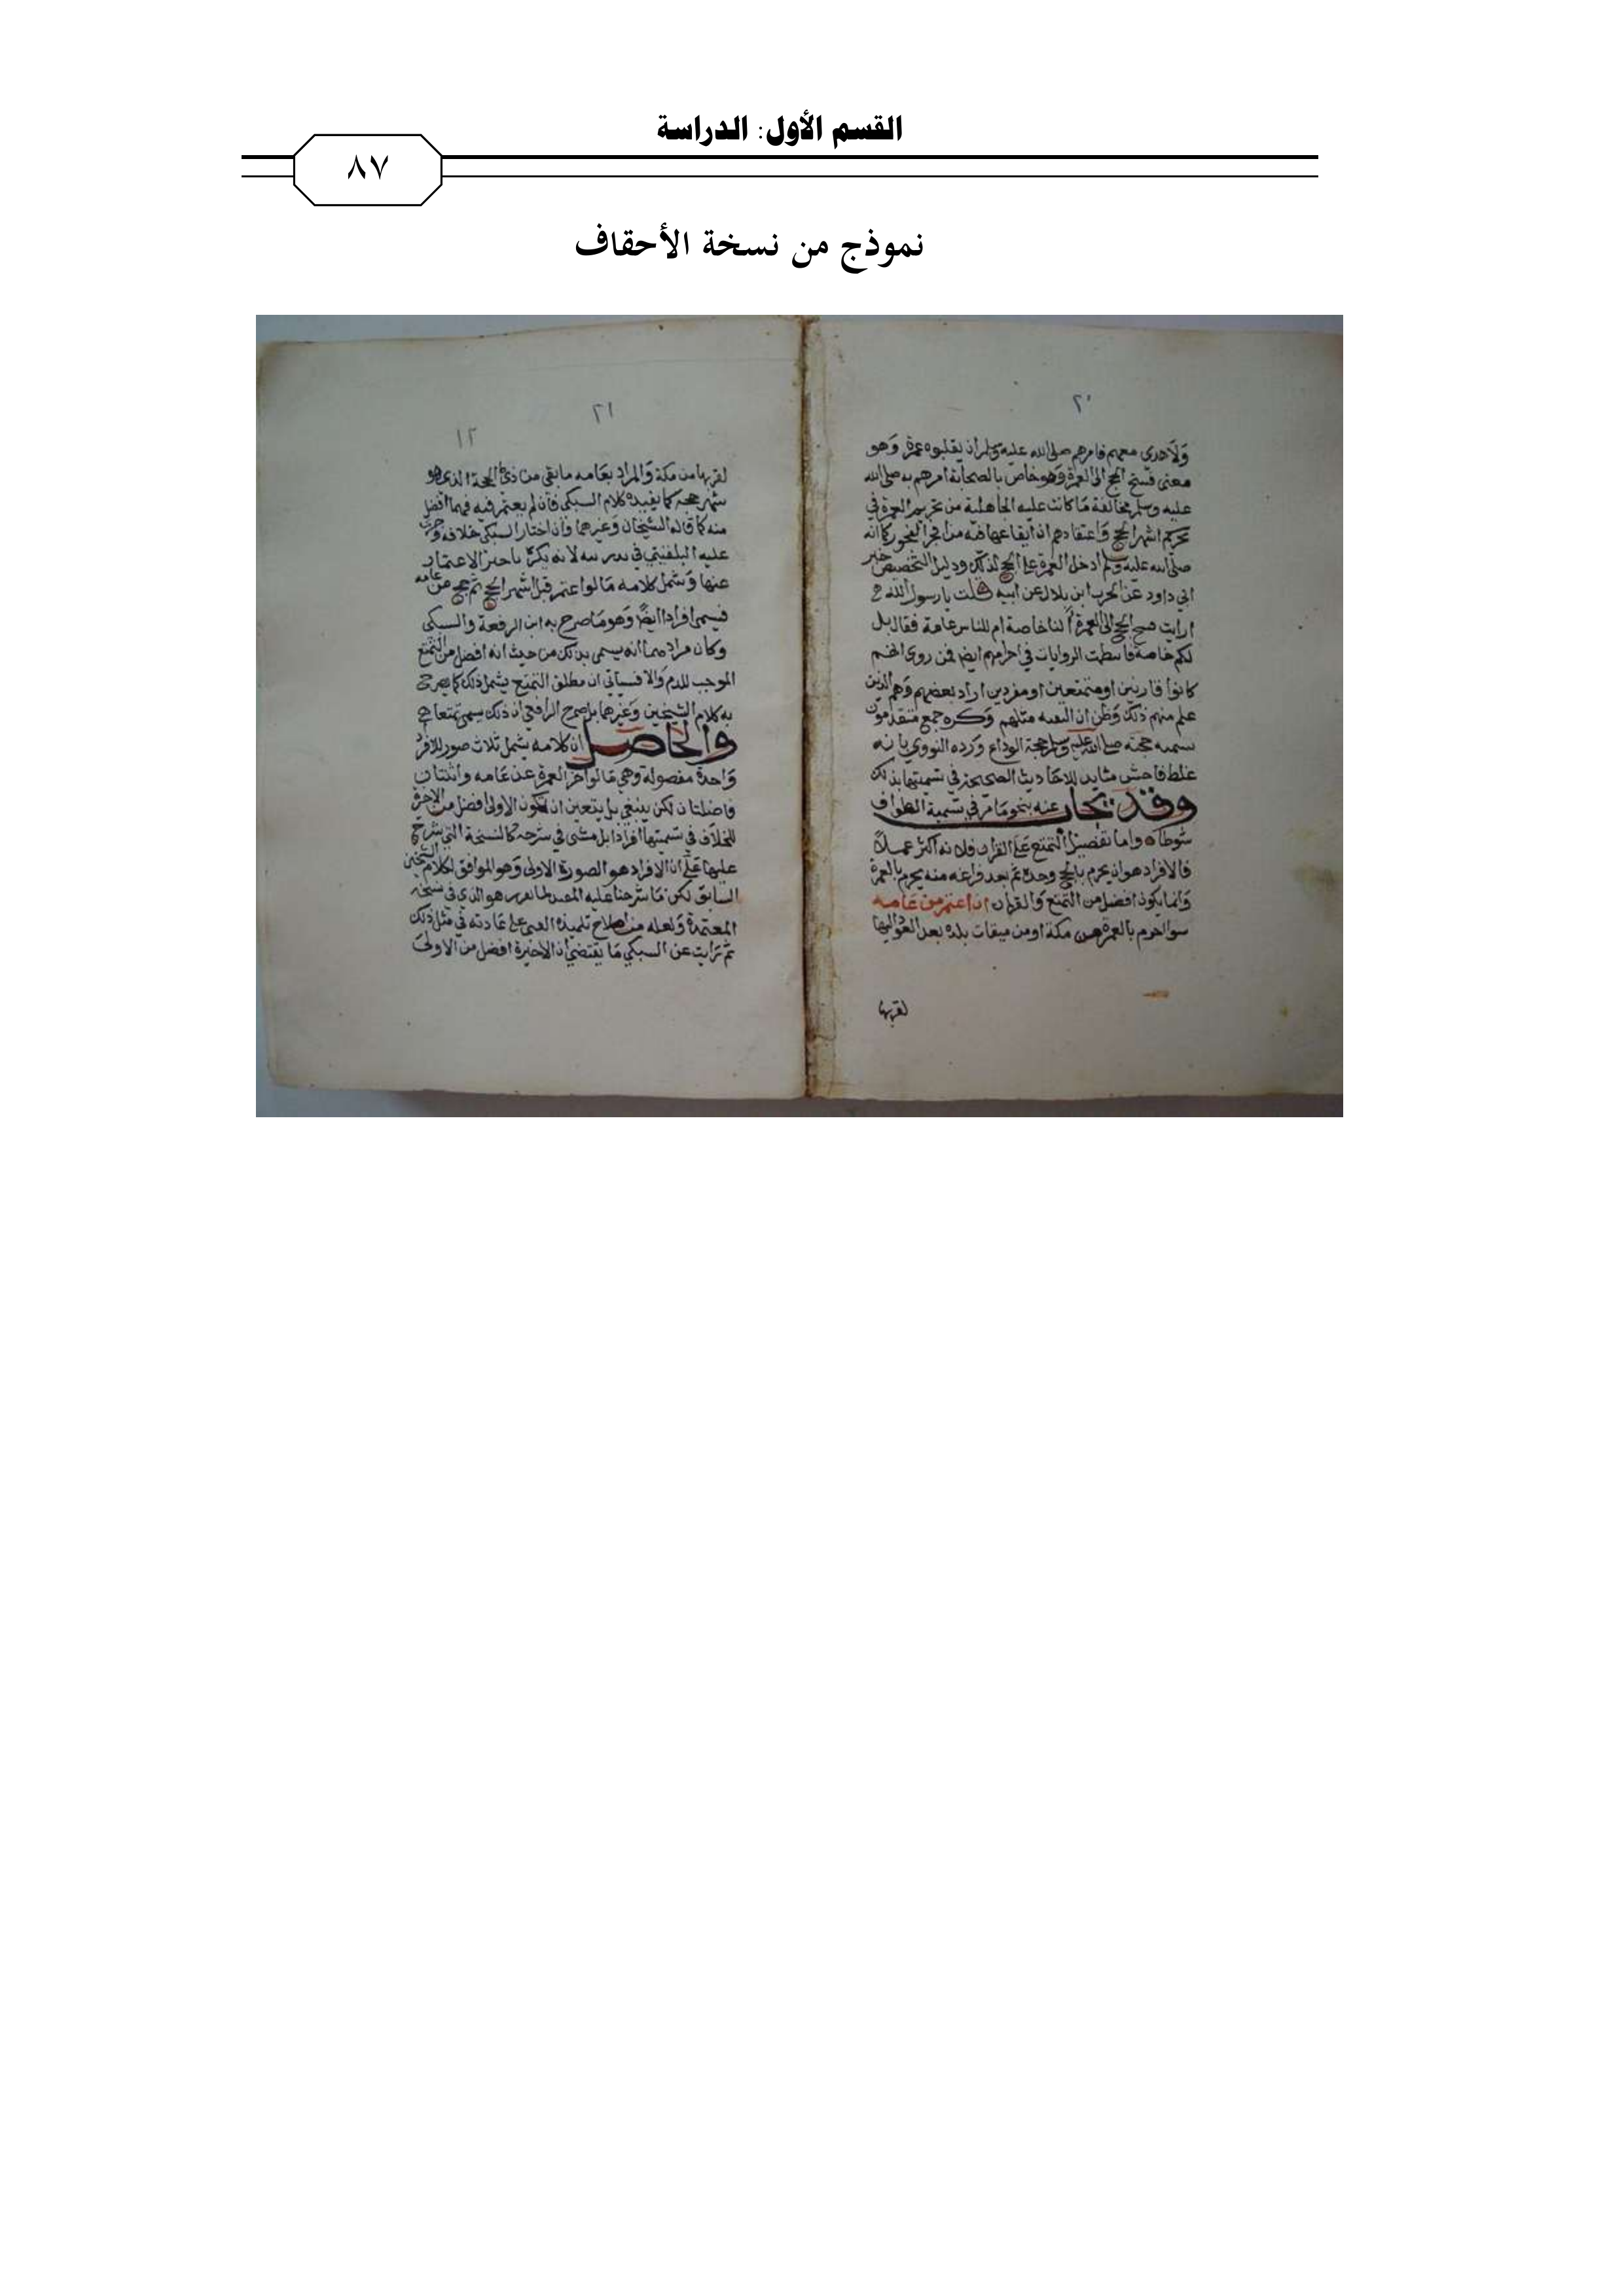 القسم الأول: الدراسة
٨٧
نموذج من نسخة الأحقاف
٢٠
ولا هدي معهم فامرهم صلى الله عليه وسلم ان يقلبوه عمرة وهو
معنى فسخ الحج الى العمرة وهو خاص بالصحابة امرهم به صلى الله
عليه وسلم مخالفة ما كانت عليه الجاهلية من تحريم العمرة في
اشهر الحج واعتقادهم ان ايقاعها فيه من افجر الفجور كما انه
صلى الله عليه وسلم ادخل العمرة على الحج لذلك ودليل التخصيص خبر
ابي داود عن الحرث ابن بلال عن ابيه قلت يا رسول الله
ارايت فسخ الحج الى العمرة ألنا خاصة ام للناس عامة فقال بل
لكم خاصة الروايات في احرامهم ايضا فمن روى انهم
كانوا قارنين او متمتعين او مفردين اراد بعضهم وهم الذين
علم منهم ذلك وظن ان البقية مثلهم وكره جمع متقدمون
تسمية حجته صلى الله عليه وسلم حجة الوداع ورده النووي بانه
غلط فاحش منابذ للاحاديث الصحيحة في تسميتها بذلك
وقد يجاب عنه بنحو ما مر في تسمية الطواف
شوطا واما تفضيل التمتع على القران فلانه اكثر عملا
فالافراد هو ان يحرم بالحج وحده ثم بعد فراغه منه يحرم بالعمرة
وانما يكون افضل من التمتع والقران ان اعتمر من عامه
سوا احرم بالعمرة من مكة او من ميقات بلده بعد العود اليها
لقربها
٢١
١٢
لقربها من مكة والمراد بعامه ما بقي من ذي الحجة الذي هو
شهر حجه كما يفيده كلام السبكي فان لم يعتمر فيه فهما افضل
منه كما قاله الشيخان وغيرهما وان اختار السبكي خلافه
عليه البلقيني في تدريبه لانه يكره تاخير الاعتمار
عنها وشمل كلامه ما لو اعتمر قبل اشهر الحج ثم حج من عامه
فيسمى افرادا ايضا وهو ما صرح به ابن الرفعة والسبكي
وكان مرادهما انه يسمى بذلك من حيث انه افضل من التمتع
الموجب للدم والا فسياتي ان مطلق التمتع يشمل ذلك كما يصرح
به كلام الشيخين وغيرهما بل صرح الرافعي ان ذلك يسمى تمتعا
والحاصل ان كلامه يشمل ثلاث صور للافراد
واحدة مفضولة وهي ما لو اخر العمرة عن عامه واثنتان
فاضلتان لكن ينبغي بل يتعين ان تكون الاولى افضل من الاخيرة
للخلاف في تسميتها افرادا بل مشى في شرحه كالنسخة التي شرح
عليها على ان الافراد هو الصورة الاولى وهو الموافق لكلام الشيخين
السابق لكن ما شرحنا عليه هو الذي في نسخه
المعتمدة ولعله من اصلاح تلميذه على عادته في مثل ذلك
ثم رايت عن السبكي ما يقتضي ان الاخيرة افضل من الاولى